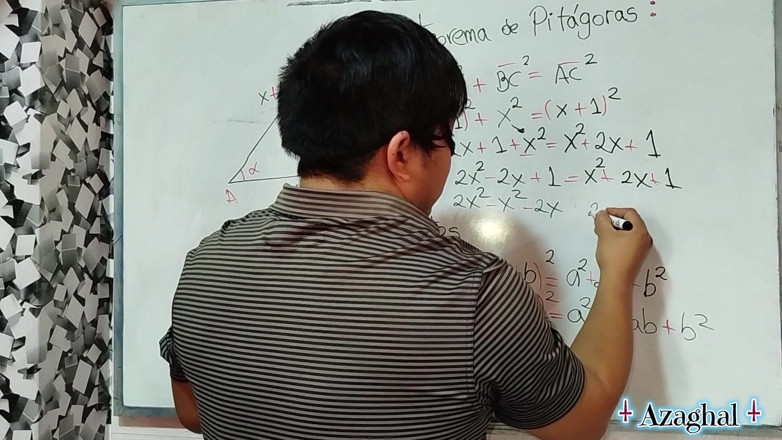 de Pitágoras :
+ BC² = AC²
+ x² = (x + 1)²
x + 1 + x² = x² + 2x + 1
2x² - 2x + 1 = x² + 2x + 1
2x² - x² - 2x
x+
α
A
b)² = a² + b²
² = a² ab + b²
Azaghal